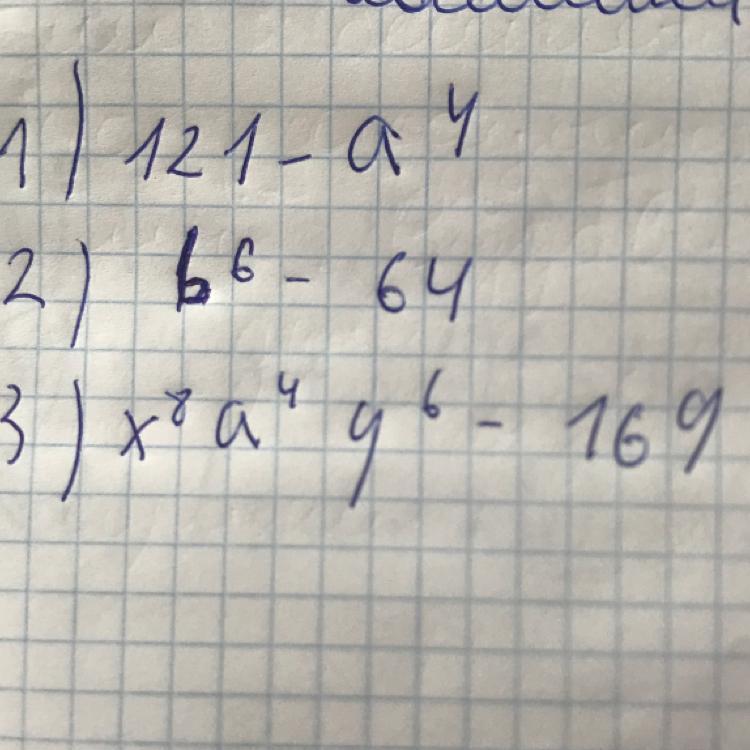 1) 121 - a⁴
2) b⁶ - 64
3) x⁸ a⁴ y⁶ - 169